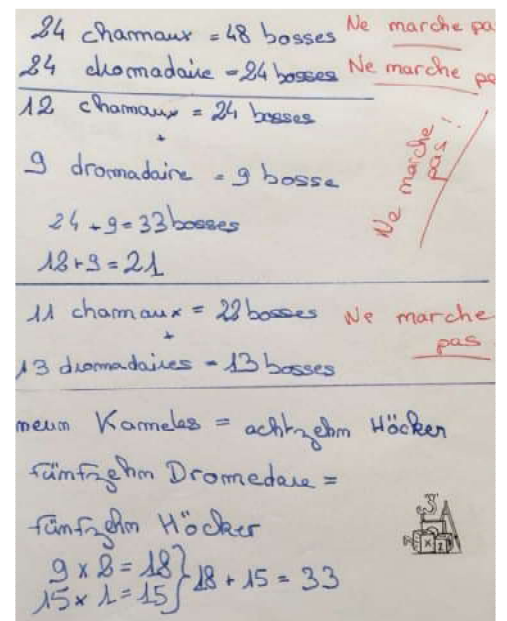 24 chammaux = 48 bosses Ne marche pa
24 dromadaire = 24 bosses Ne marche pa
12 chamaux = 24 bosses
+
9 dromadaire = 9 bosse
24 + 9 = 33 bosses
12 + 9 = 21
Ne marche pas !
11 chamaux = 22 bosses Ne marche pas
+
13 dromadaires = 13 bosses
neun Kameles = achtzehn Höcker
fünfzehn Dromedare =
fünfzehn Höcker
9 x 2 = 18 } 18 + 15 = 33
15 x 1 = 15